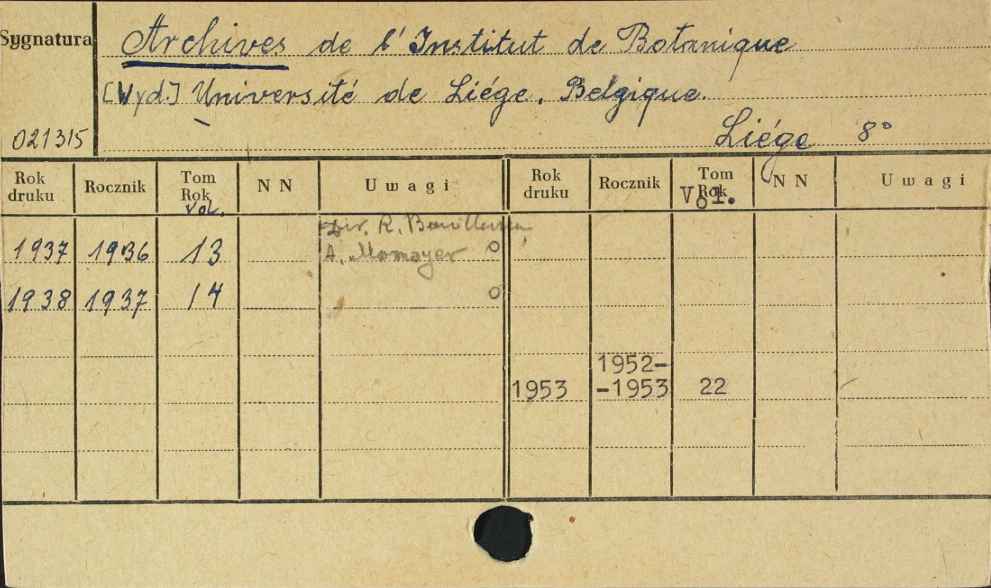 Sygnatura
Archives de l'Institut de Botanique
[Wyd.] Université de Liége, Belgique.
021315
Liége 8°
Rok druku Rocznik Tom Rok Vol. N N Uwagi Rok druku Rocznik Tom Rok Vol. N N Uwagi
Dir. R.
1937 1936 13 A. o
1938 1937 14 o
1952-
1953 -1953 22